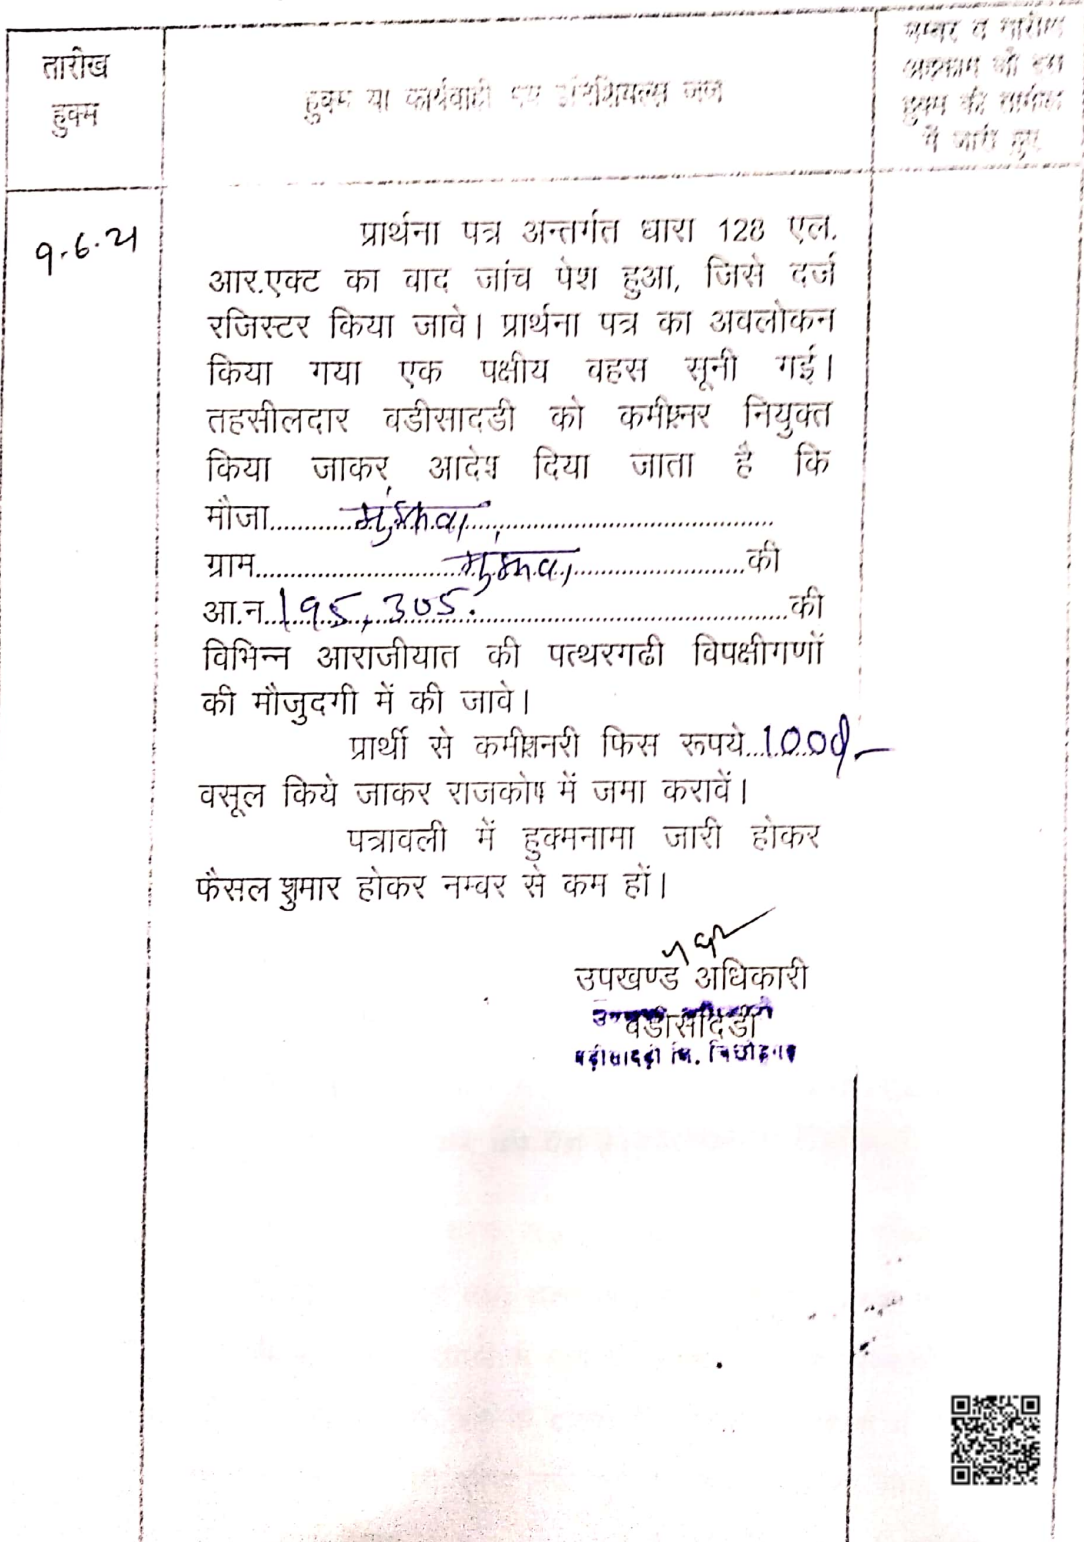 तारीख
हुक्म
हुक्म या कार्यवाही मय इनिशियल्स जज
नम्बर व तारीख
अहकाम जो इस
हुक्म की तामील
में जारी हुए
9.6.21
प्रार्थना पत्र अन्तर्गत धारा 128 एल.
आर.एक्ट का वाद जांच पेश हुआ, जिसे दर्ज
रजिस्टर किया जावे। प्रार्थना पत्र का अवलोकन
किया गया एक पक्षीय वहस सूनी गई।
तहसीलदार वडीसादडी को कमीश्नर नियुक्त
किया जाकर आदेष दिया जाता है कि
मौजा
ग्राम की
आ.न. 195, 305. की
विभिन्न आराजीयात की पत्थरगढी विपक्षीगणों
की मौजुदगी में की जावे।
प्रार्थी से कमीश्नरी फिस रूपये 1000/-
वसूल किये जाकर राजकोष में जमा करावें।
पत्रावली में हुक्मनामा जारी होकर
फैसल शुमार होकर नम्वर से कम हों।
उपखण्ड अधिकारी
वडीसादडी
बड़ीसादड़ी जि. चित्तौड़गढ़